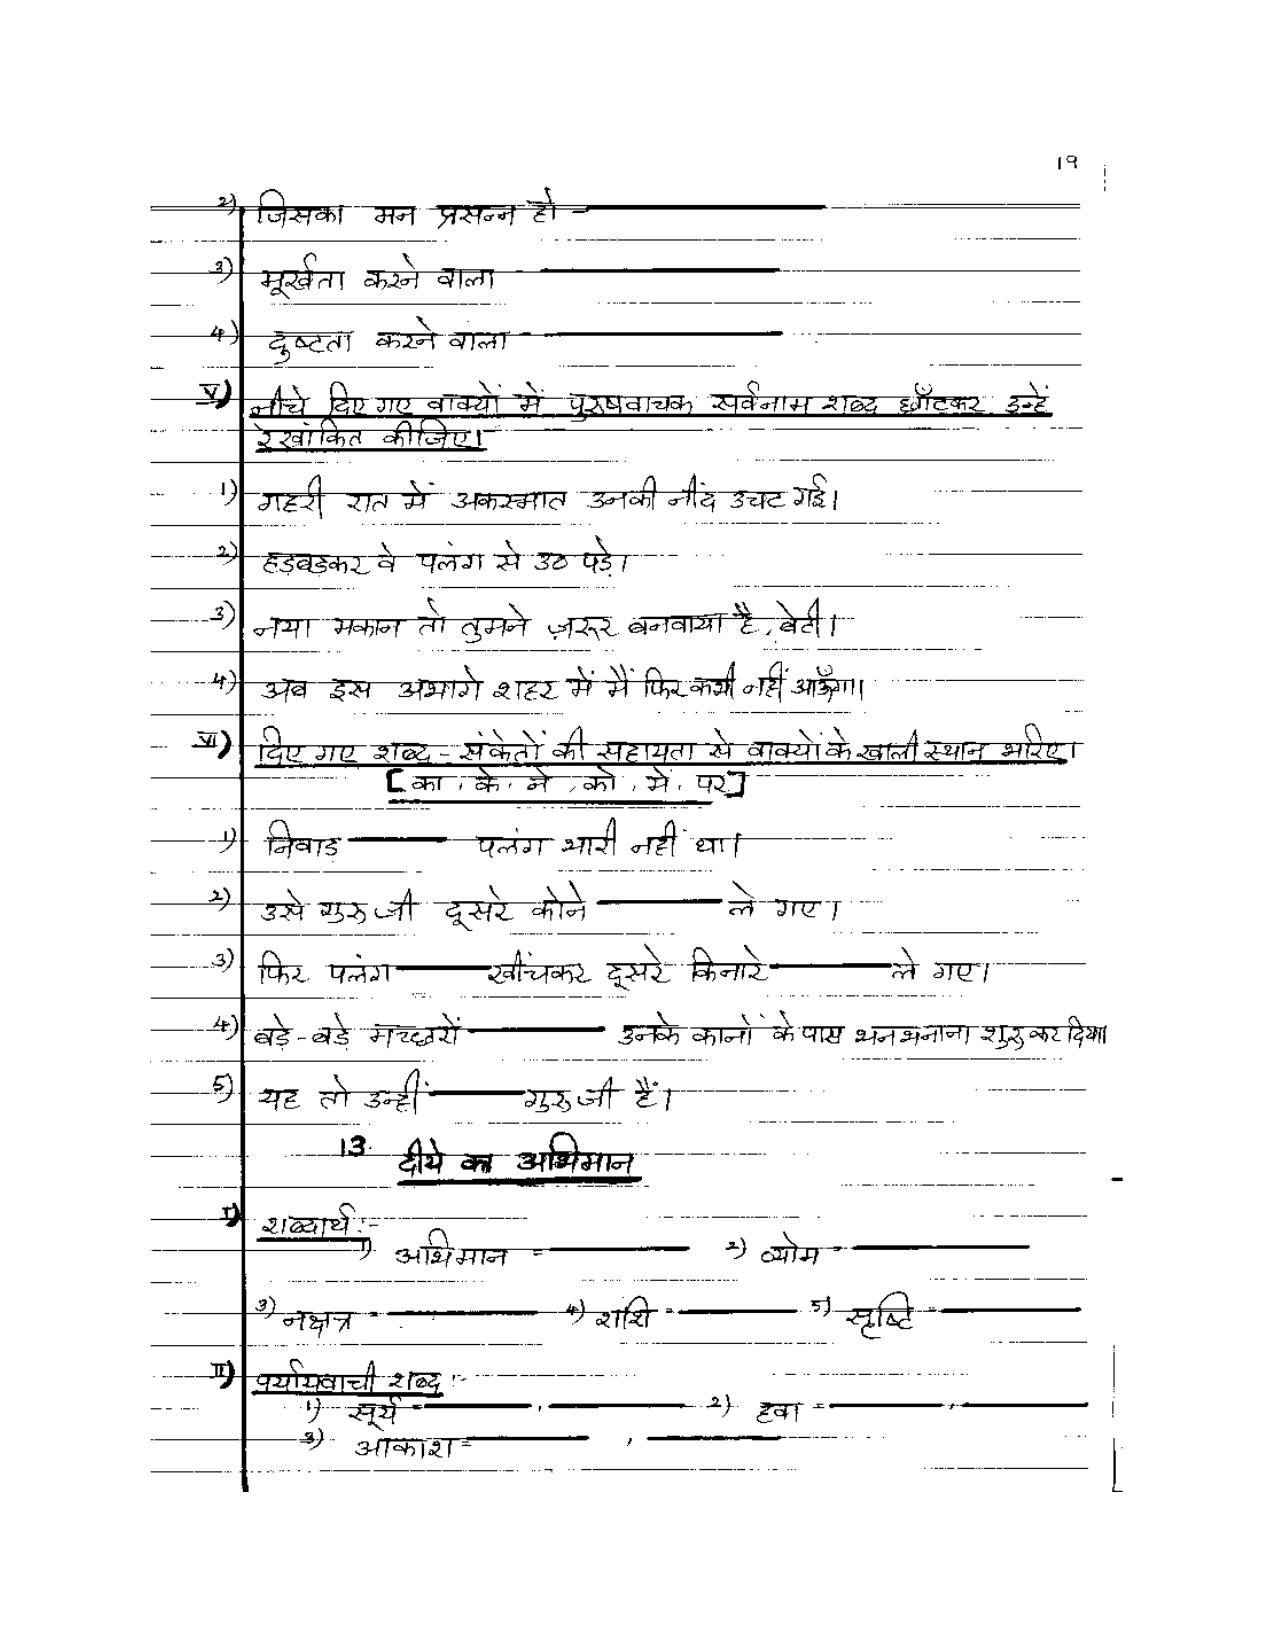 19
2) जिसका मन प्रसन्न हो -
3) मूर्खता करने वाला -
4) दुष्टता करने वाला -
V) नीचे दिए गए वाक्यों में पुरुषवाचक सर्वनाम शब्द छाँटकर उन्हें
रेखांकित कीजिए।
1) गहरी रात में अकस्मात उनकी नींद उचट गई।
2) हड़बड़कर वे पलंग से उठ पड़े।
3) नया मकान तो तुमने ज़रूर बनवाया है, बेटी।
4) अब इस अभागे शहर में मैं फिर कभी नहीं आऊँगा।
VI) दिए गए शब्द - संकेतों की सहायता से वाक्यों के खाली स्थान भरिए।
[का, के, ने, को, मे, पर]
1) निवाड पलंग भारी नहीं था।
2) उसे गुरुजी दूसरे कोने ले गए।
3) फिर पलंग खींचकर दूसरे किनारे ले गए।
4) बड़े-बड़े मच्छरों उनके कानों के पास भनभनाना शुरु कर दिया।
5) यह तो उन्हीं गुरुजी हैं।
13. दीये का अभिमान
I) शब्दार्थ :-
1) अभिमान = 2) व्योम =
3) नक्षत्र = 4) शशि = 5) सृष्टि =
II) पर्यायवाची शब्द :-
1) सूर्य = , 2) हवा = ,
3) आकाश = ,